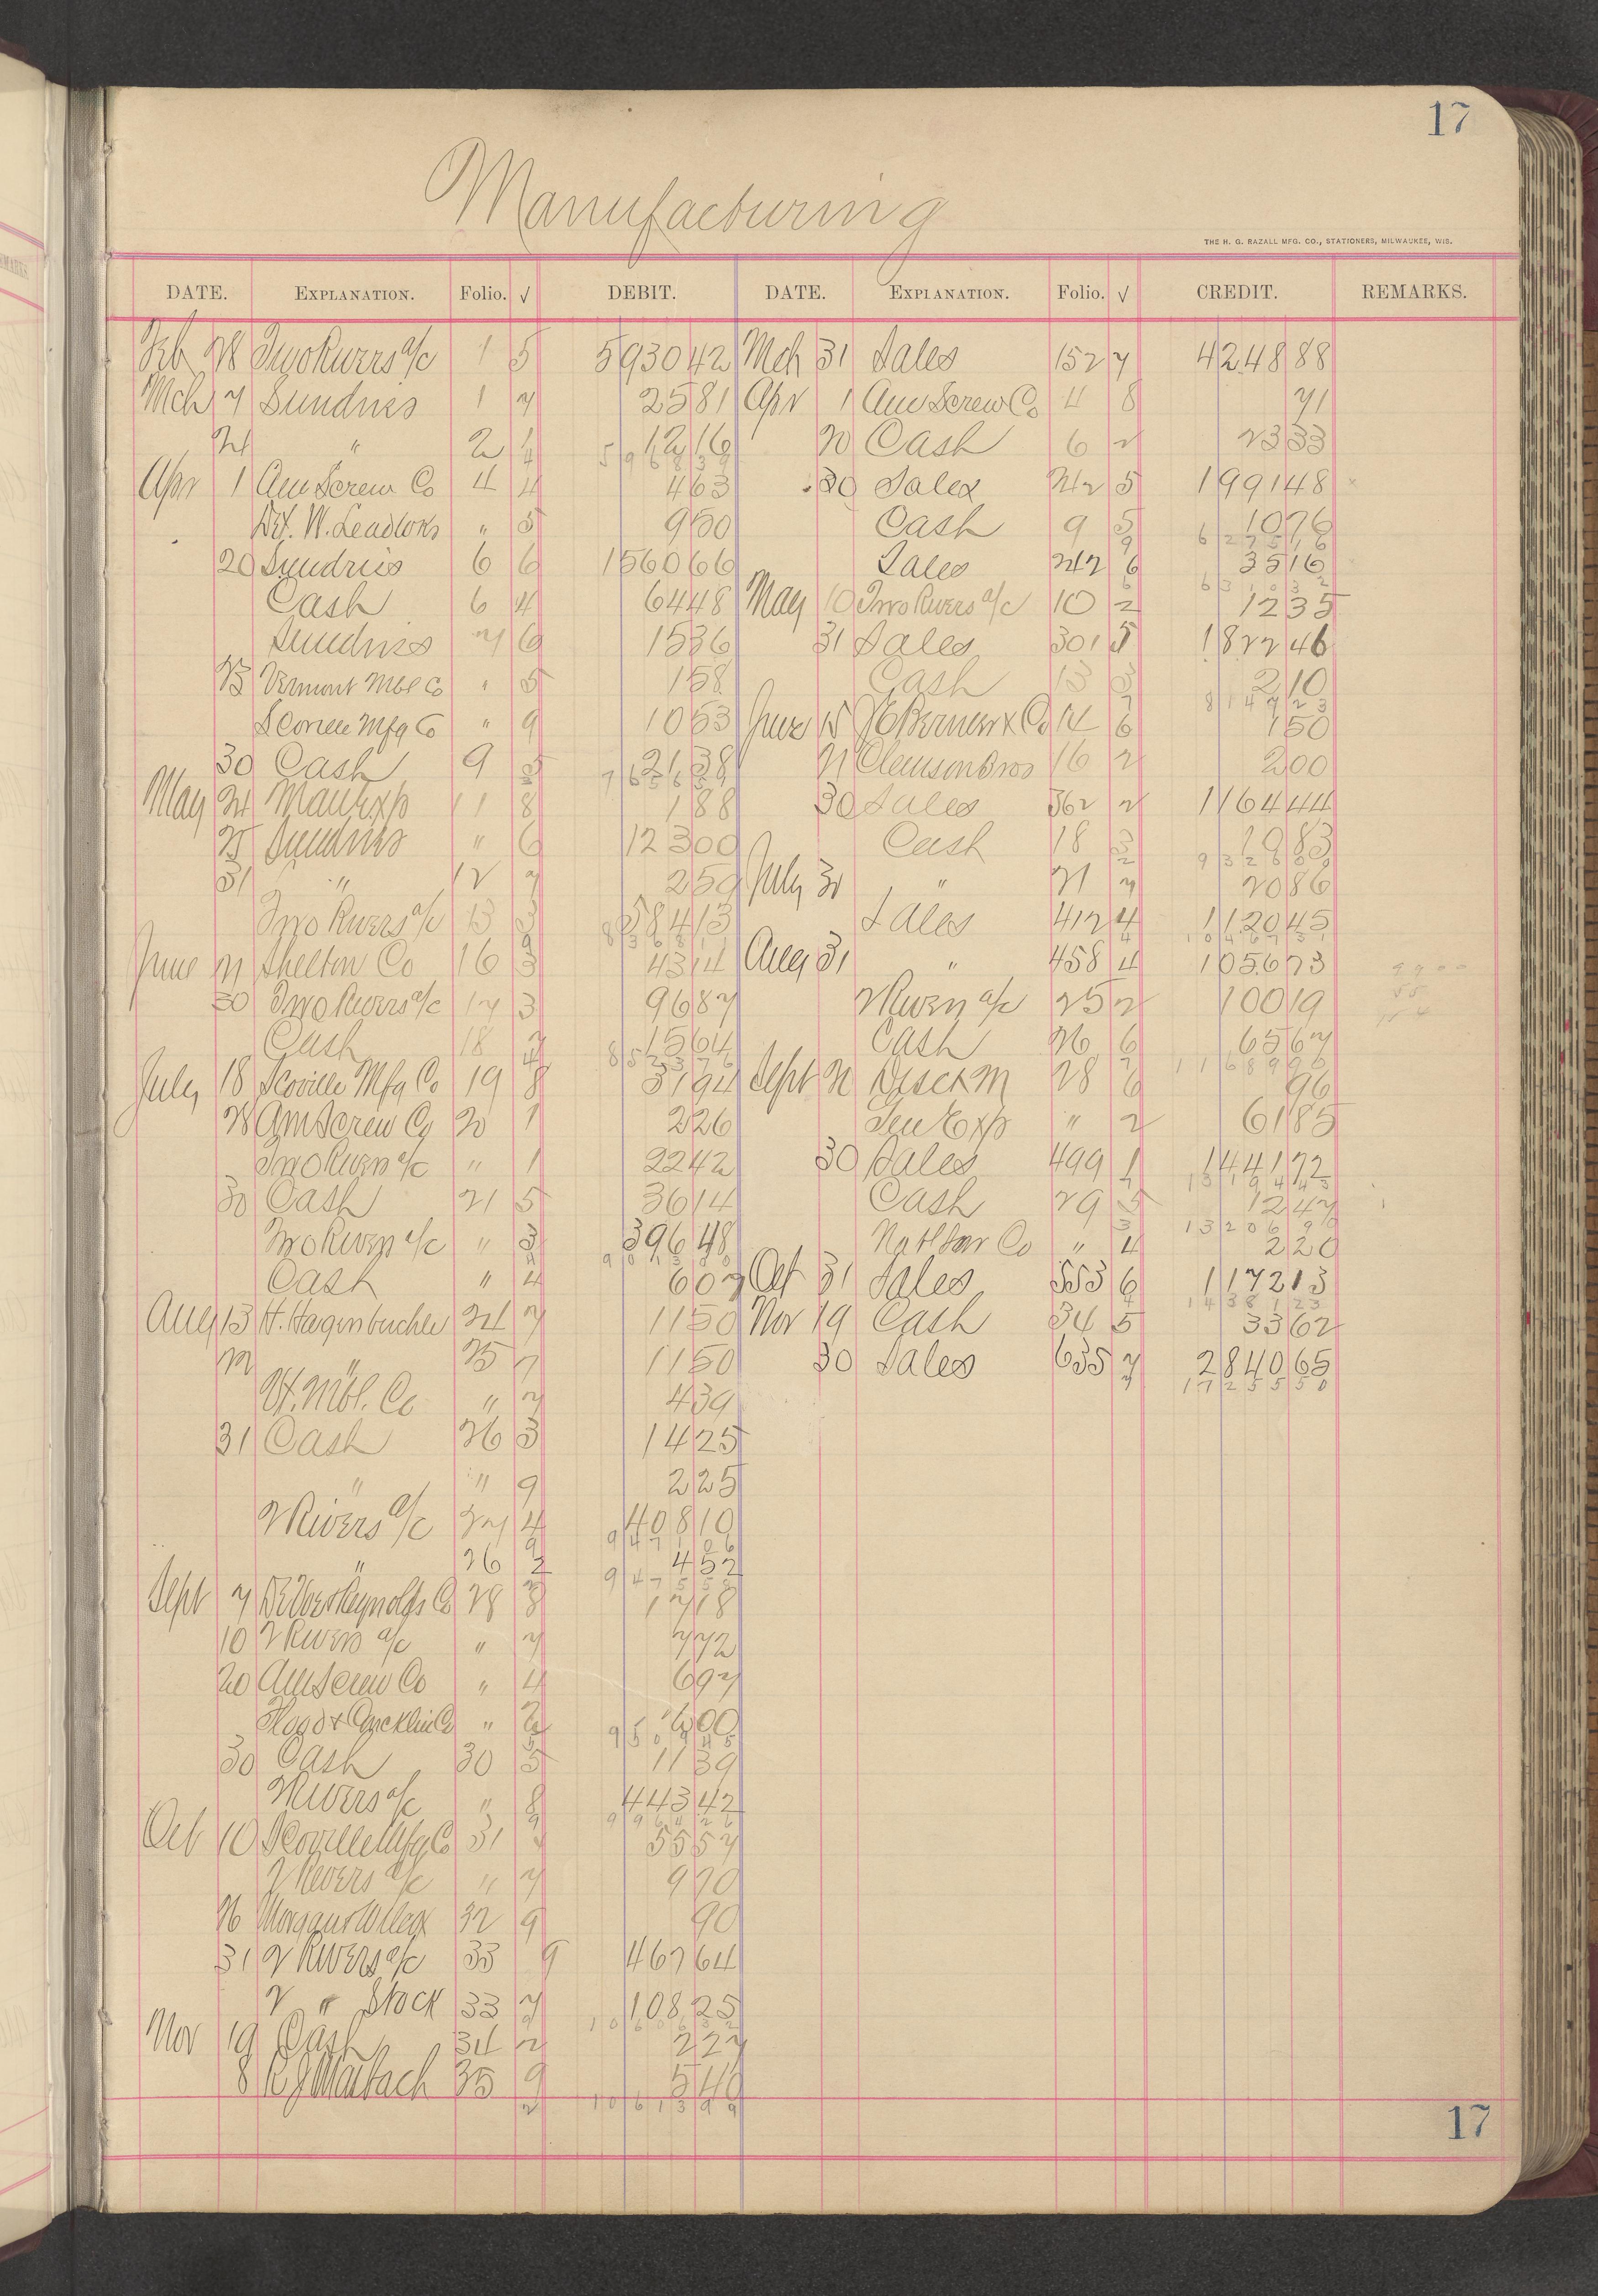 17
Manufacturing
THE H. G. RAZALL MFG. CO., STATIONERS, MILWAUKEE, WIS.
DATE. EXPLANATION. Folio. √ DEBIT. DATE. EXPLANATION. Folio. √ CREDIT. REMARKS.
Feb 28 Two Rivers a/c 1 5 5930 42 Mch 31 Sales 152 7 4248 88
Mch 7 Sundries 1 7 25 81 Apr 1 Am Screw Co 4 8 71
24 " 2 1 12 16 20 Cash 6 2 23 33
4 5968 39
Apr 1 Am Screw Co 4 4 4 63 30 Sales 242 5 1991 48
W. Leadloks " 5 9 50 Cash 9 5 10 76
9 6275 16
20 Sundries 6 6 1560 66 Sales 242 6 35 16
6 6310 32
Cash 6 4 64 48 May 10 Two Rivers a/c 10 2 12 35
Sundries 7 6 15 36 31 Sales 301 5 1822 46
23 Vermont Mbl Co " 5 1 58 Cash 13 3 2 10
7 8147 23
Scoville Mfg Co " 9 10 53 June 15 & Co 14 6 1 50
30 Cash 9 5 21 38 21 Clemson Bros 16 2 2 00
7656 59
May 24 Man Exp 11 8 1 88 30 Sales 362 2 1164 44
25 Sundries " 6 123 00 Cash 18 3 10 83
2 9326 00
31 " 12 7 2 50 July 31 " 21 7 20 86
Two Rivers a/c 13 3 584 13 Sales 412 4 1120 45
9 8368 11 4 10467 31
June 21 Shelton Co 16 3 43 14 Aug 31 " 458 4 1056 73
30 Two Rivers a/c 17 3 96 87 2 Rivers a/c 25 2 100 19
Cash 18 7 15 64 Cash 26 6 65 67
4 8523 76 7 11689 90
July 18 Scoville Mfg Co 19 8 31 94 Sept 21 Disc & M 28 6 96
28 Am Screw Co 20 1 2 26 Gen Exp " 2 61 85
Two Rivers a/c " 1 22 42 30 Sales 499 1 1441 72
1 13194 43
30 Cash 21 5 36 14 Cash 29 5 12 47
3 13206 90
Two Rivers a/c " 3 396 48 Co " 4 2 20
Cash " 4 6 07 Oct 31 Sales 553 6 1172 13
4 14381 23
Aug 13 H. Hagenbucher 24 7 11 50 Nov 19 Cash 34 5 33 62
" 25 7 11 50 30 Sales 635 7 2840 65
7 17255 50
Vt. Mbl. Co " 7 4 39
31 Cash 26 3 14 25
" " 9 2 25
2 Rivers a/c 27 4 408 10
9 9471 06
" 26 2 4 52
9475 58
Sept 7 DeVoe & Reynolds Co 28 8 17 18
10 2 Rivers a/c " 7 7 72
20 Am Screw Co " 4 6 97
" 2 2 00
5 9509 45
30 Cash 30 5 11 39
2 Rivers a/c " 8 443 42
9 9964 26
Oct 10 Scoville Mfg Co 31 55 57
2 Rivers a/c " 7 9 70
26 Morgan & Wilcox 32 9 90
31 2 Rivers a/c 33 9 467 64
2 " Stock 33 7 108 25
Nov 19 Cash 34 2 2 27
8 R J Maibach 35 9 5 40
2 10613 99
17